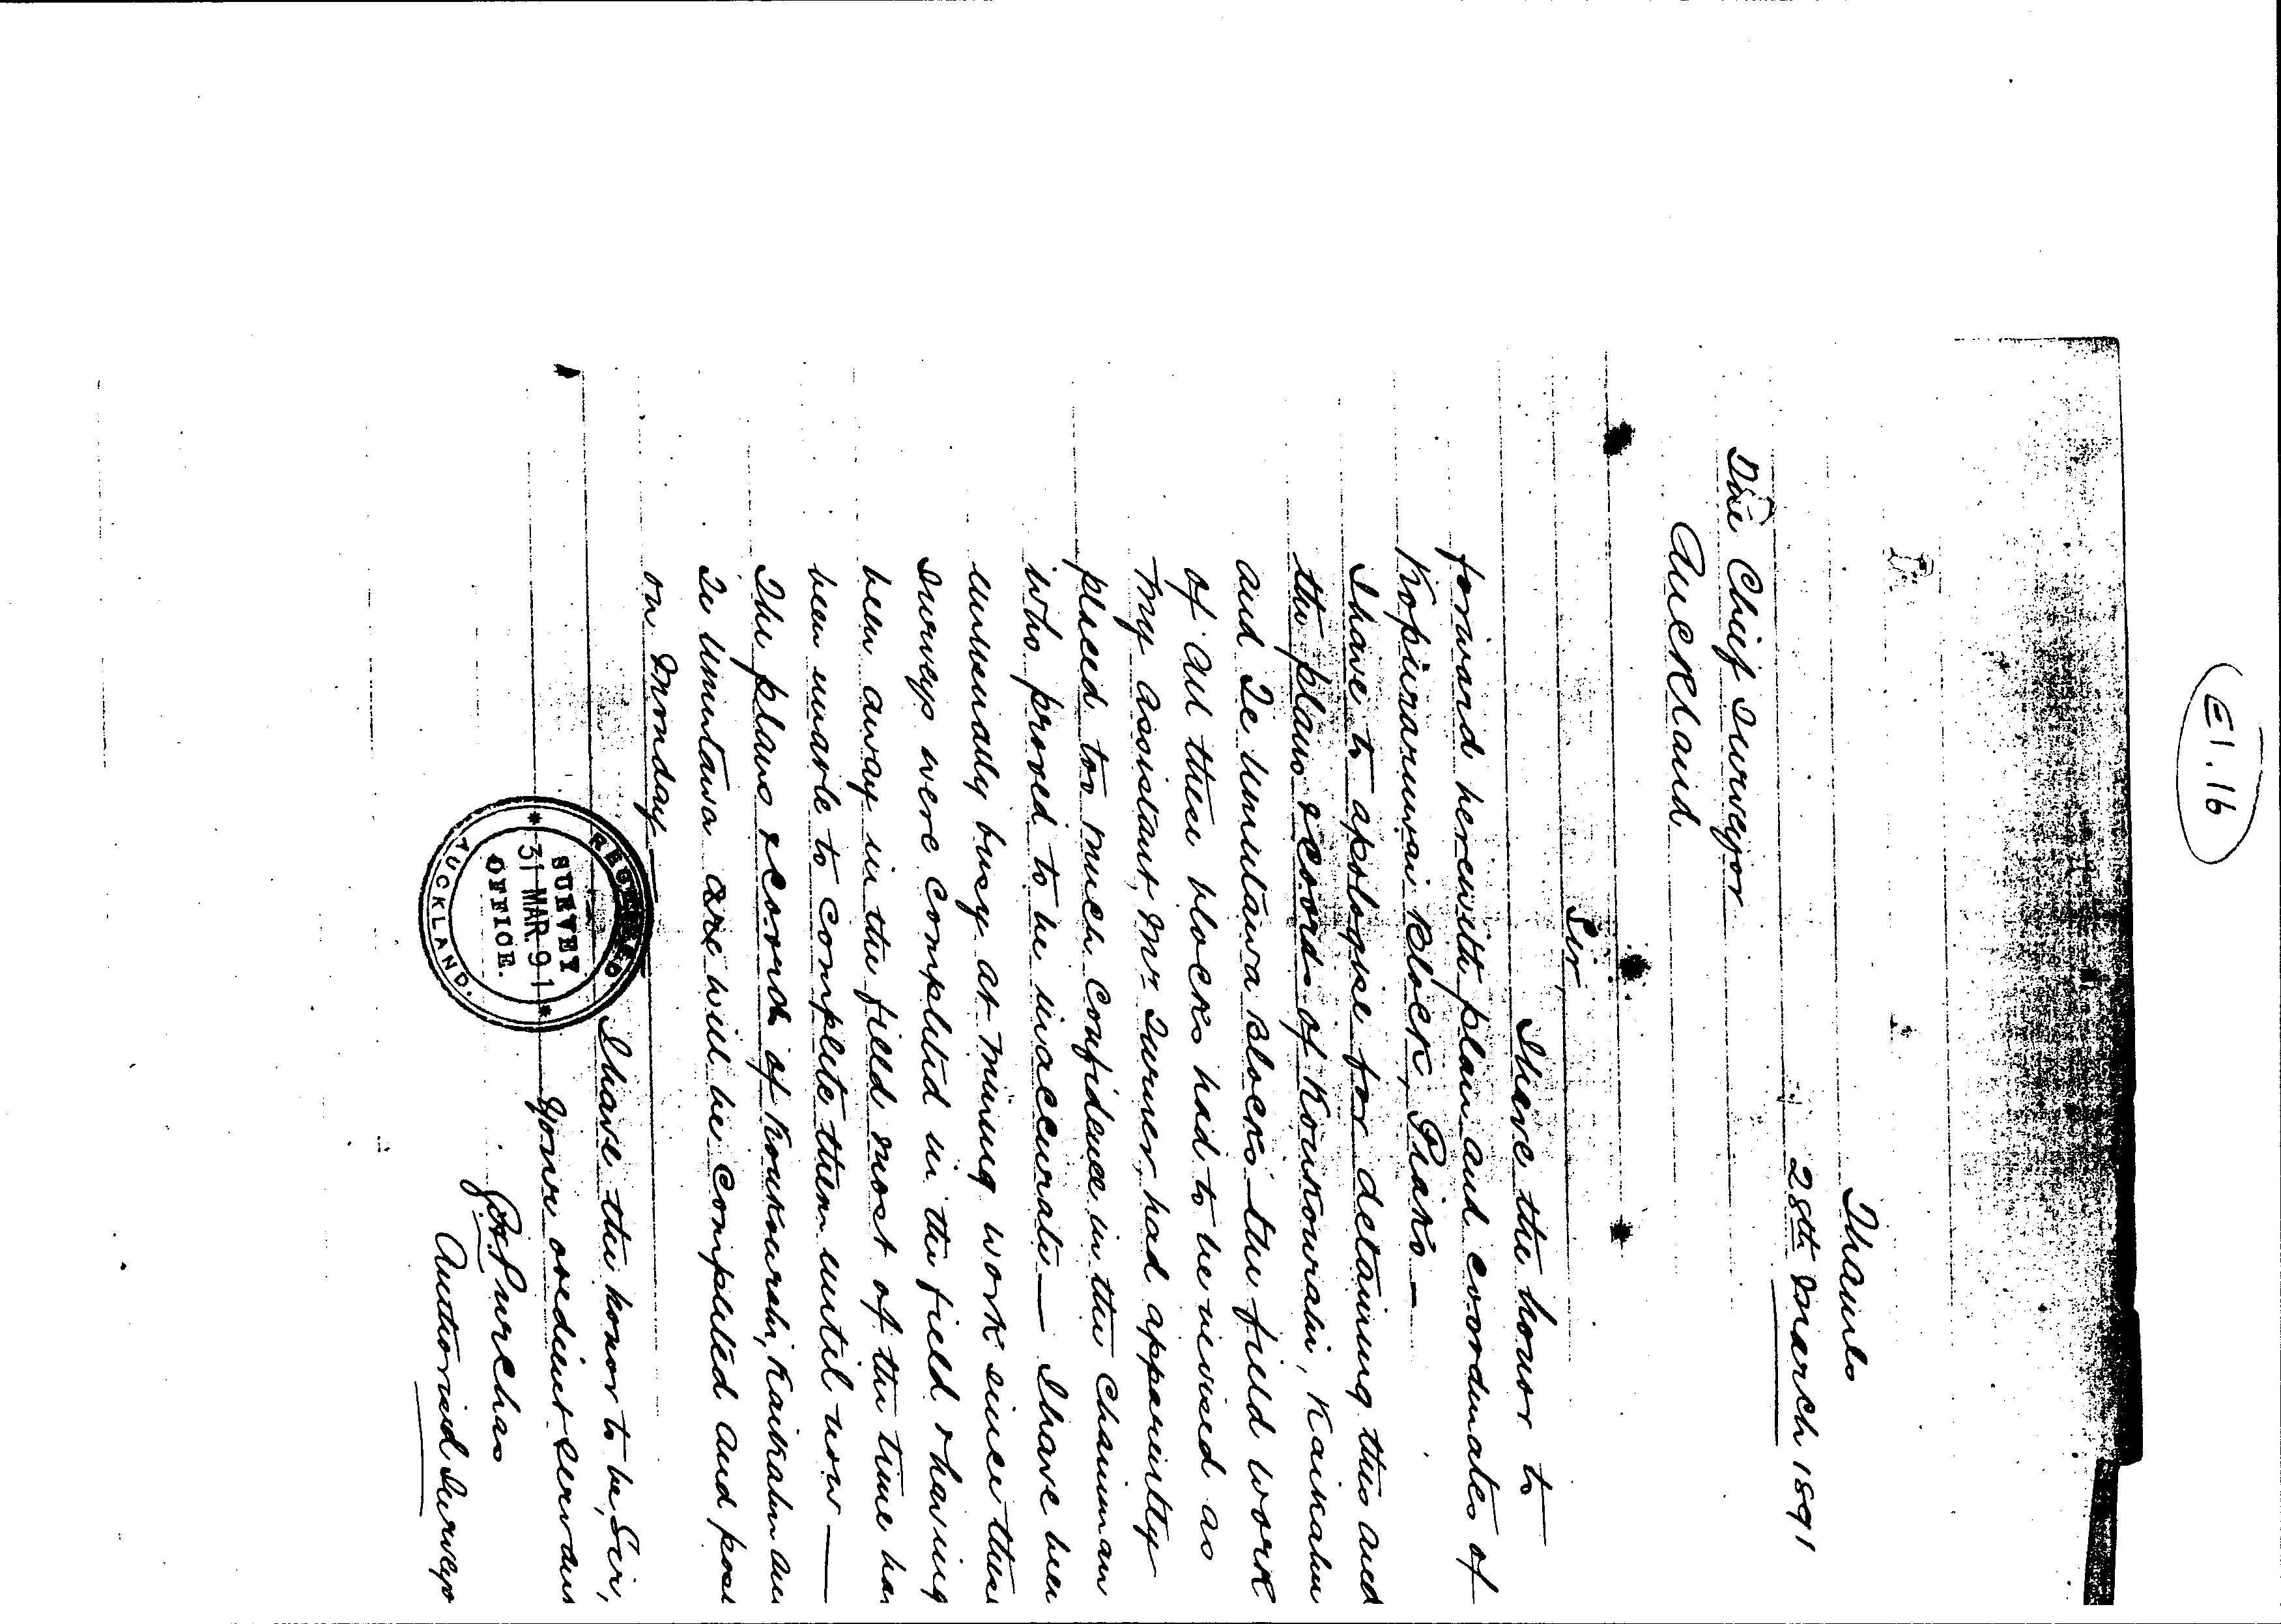 E1.16
Thames
28th March 1891
The Chief Surveyor
Auckland
Sir,
I have the honor to
forward herewith plan and coordinates of
Kopuraruwai Block, Piako —
I have to apologise for detaining this and
the plans & coords of Koukourahi, Kaikahu
and Te Umutawa Blocks — the field work
of all these blocks had to be revised as
my assistant, Mr Turner, had apparently
placed too much confidence in the Chainman
who proved to be inaccurate — I have been
unusually busy at mining work since these
surveys were completed in the field & having
been away in the field most of the time has
been unable to complete them until now —
The plans & coords of Koukourahi, Kaikahu an
Te Umutawa are will be completed and post
on Monday —
I have the honor to be, Sir,
Your obedient servan
Purchas
Authorised Surveyo
RECEIVED
SURVEY
31 MAR. 91
OFFICE.
AUCKLAND.